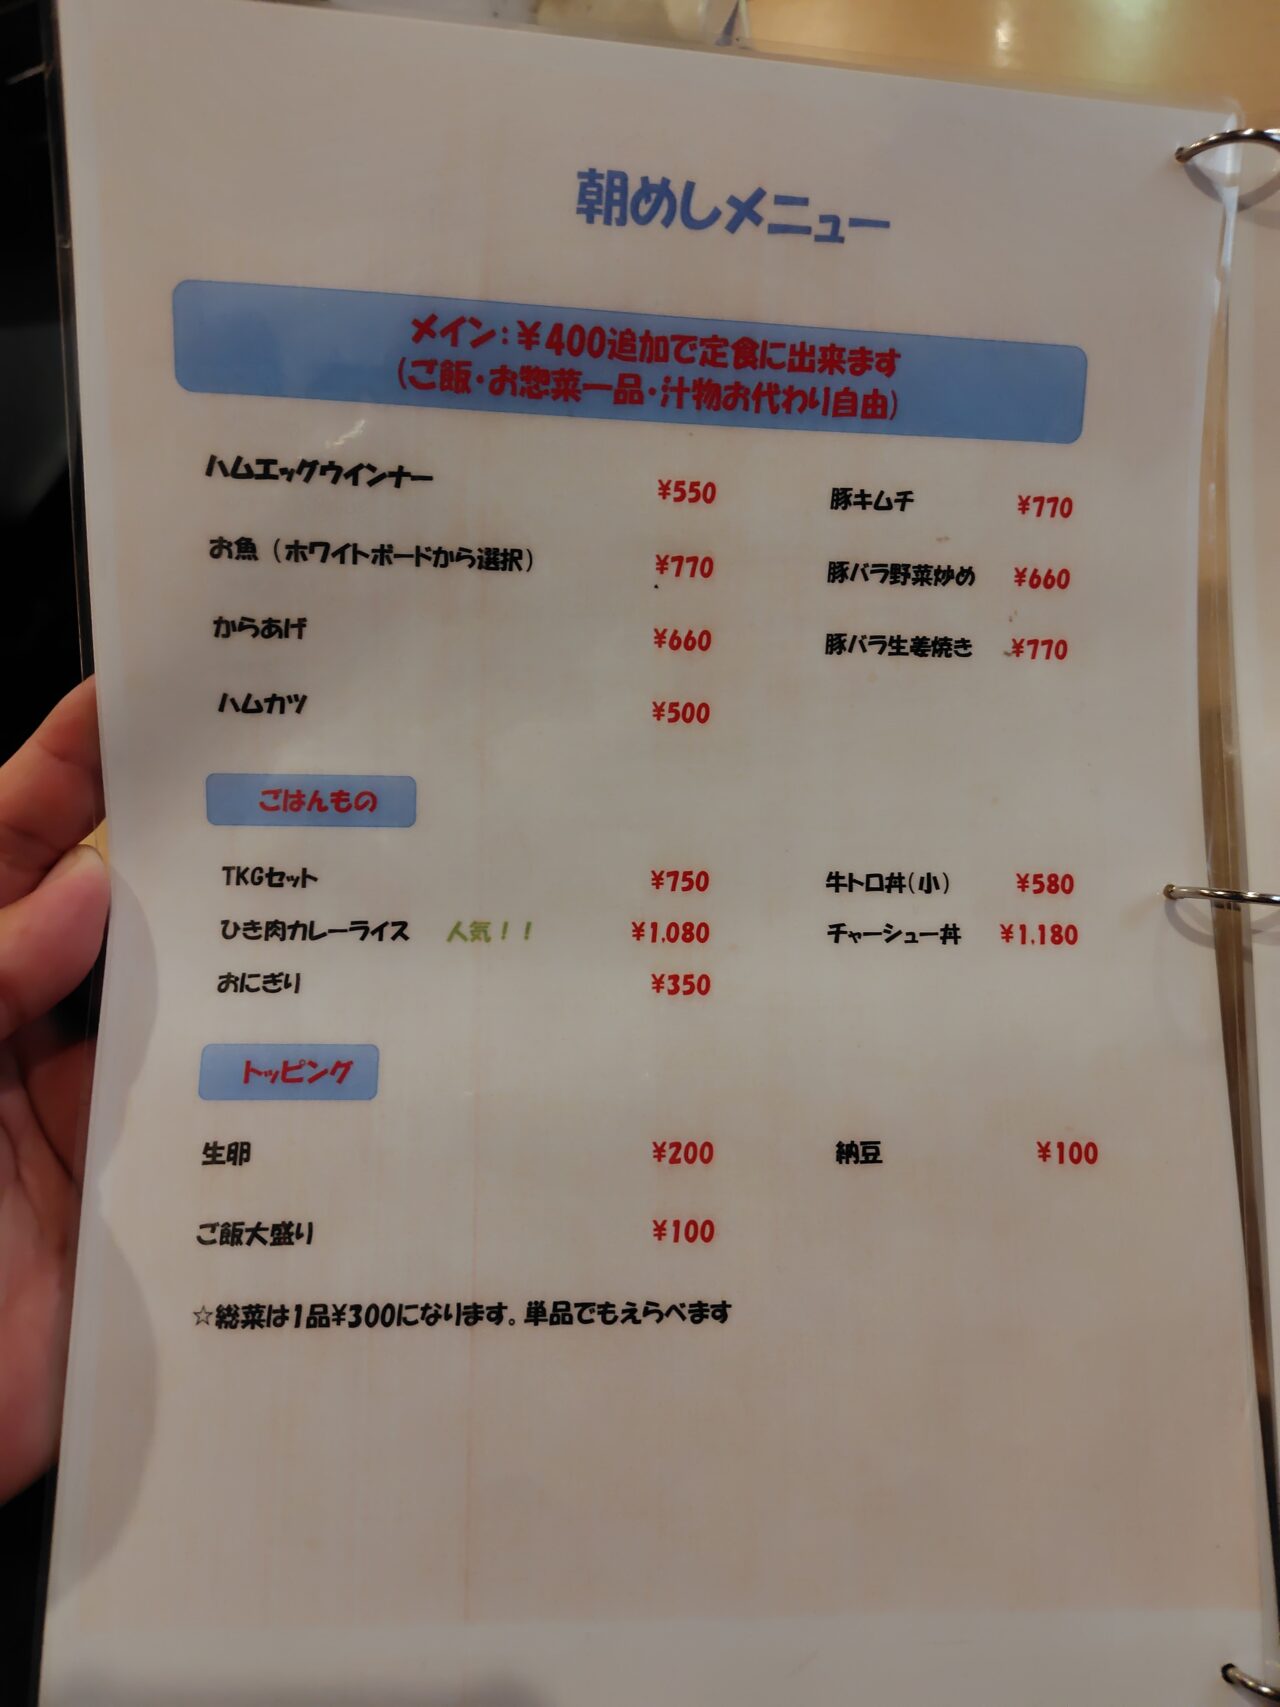 朝めしメニュー
メイン:¥400追加で定食に出来ます
(ご飯・お惣菜一品・汁物お代わり自由)
ハムエッグウインナー ¥550 豚キムチ ¥770
お魚(ホワイトボードから選択) ¥770 豚バラ野菜炒め ¥660
からあげ ¥660 豚バラ生姜焼き ¥770
ハムカツ ¥500
ごはんもの
TKGセット ¥750 牛トロ丼(小) ¥580
ひき肉カレーライス 人気!! ¥1,080 チャーシュー丼 ¥1,180
おにぎり ¥350
トッピング
生卵 ¥200 納豆 ¥100
ご飯大盛り ¥100
☆総菜は1品¥300になります。単品でもえらべます